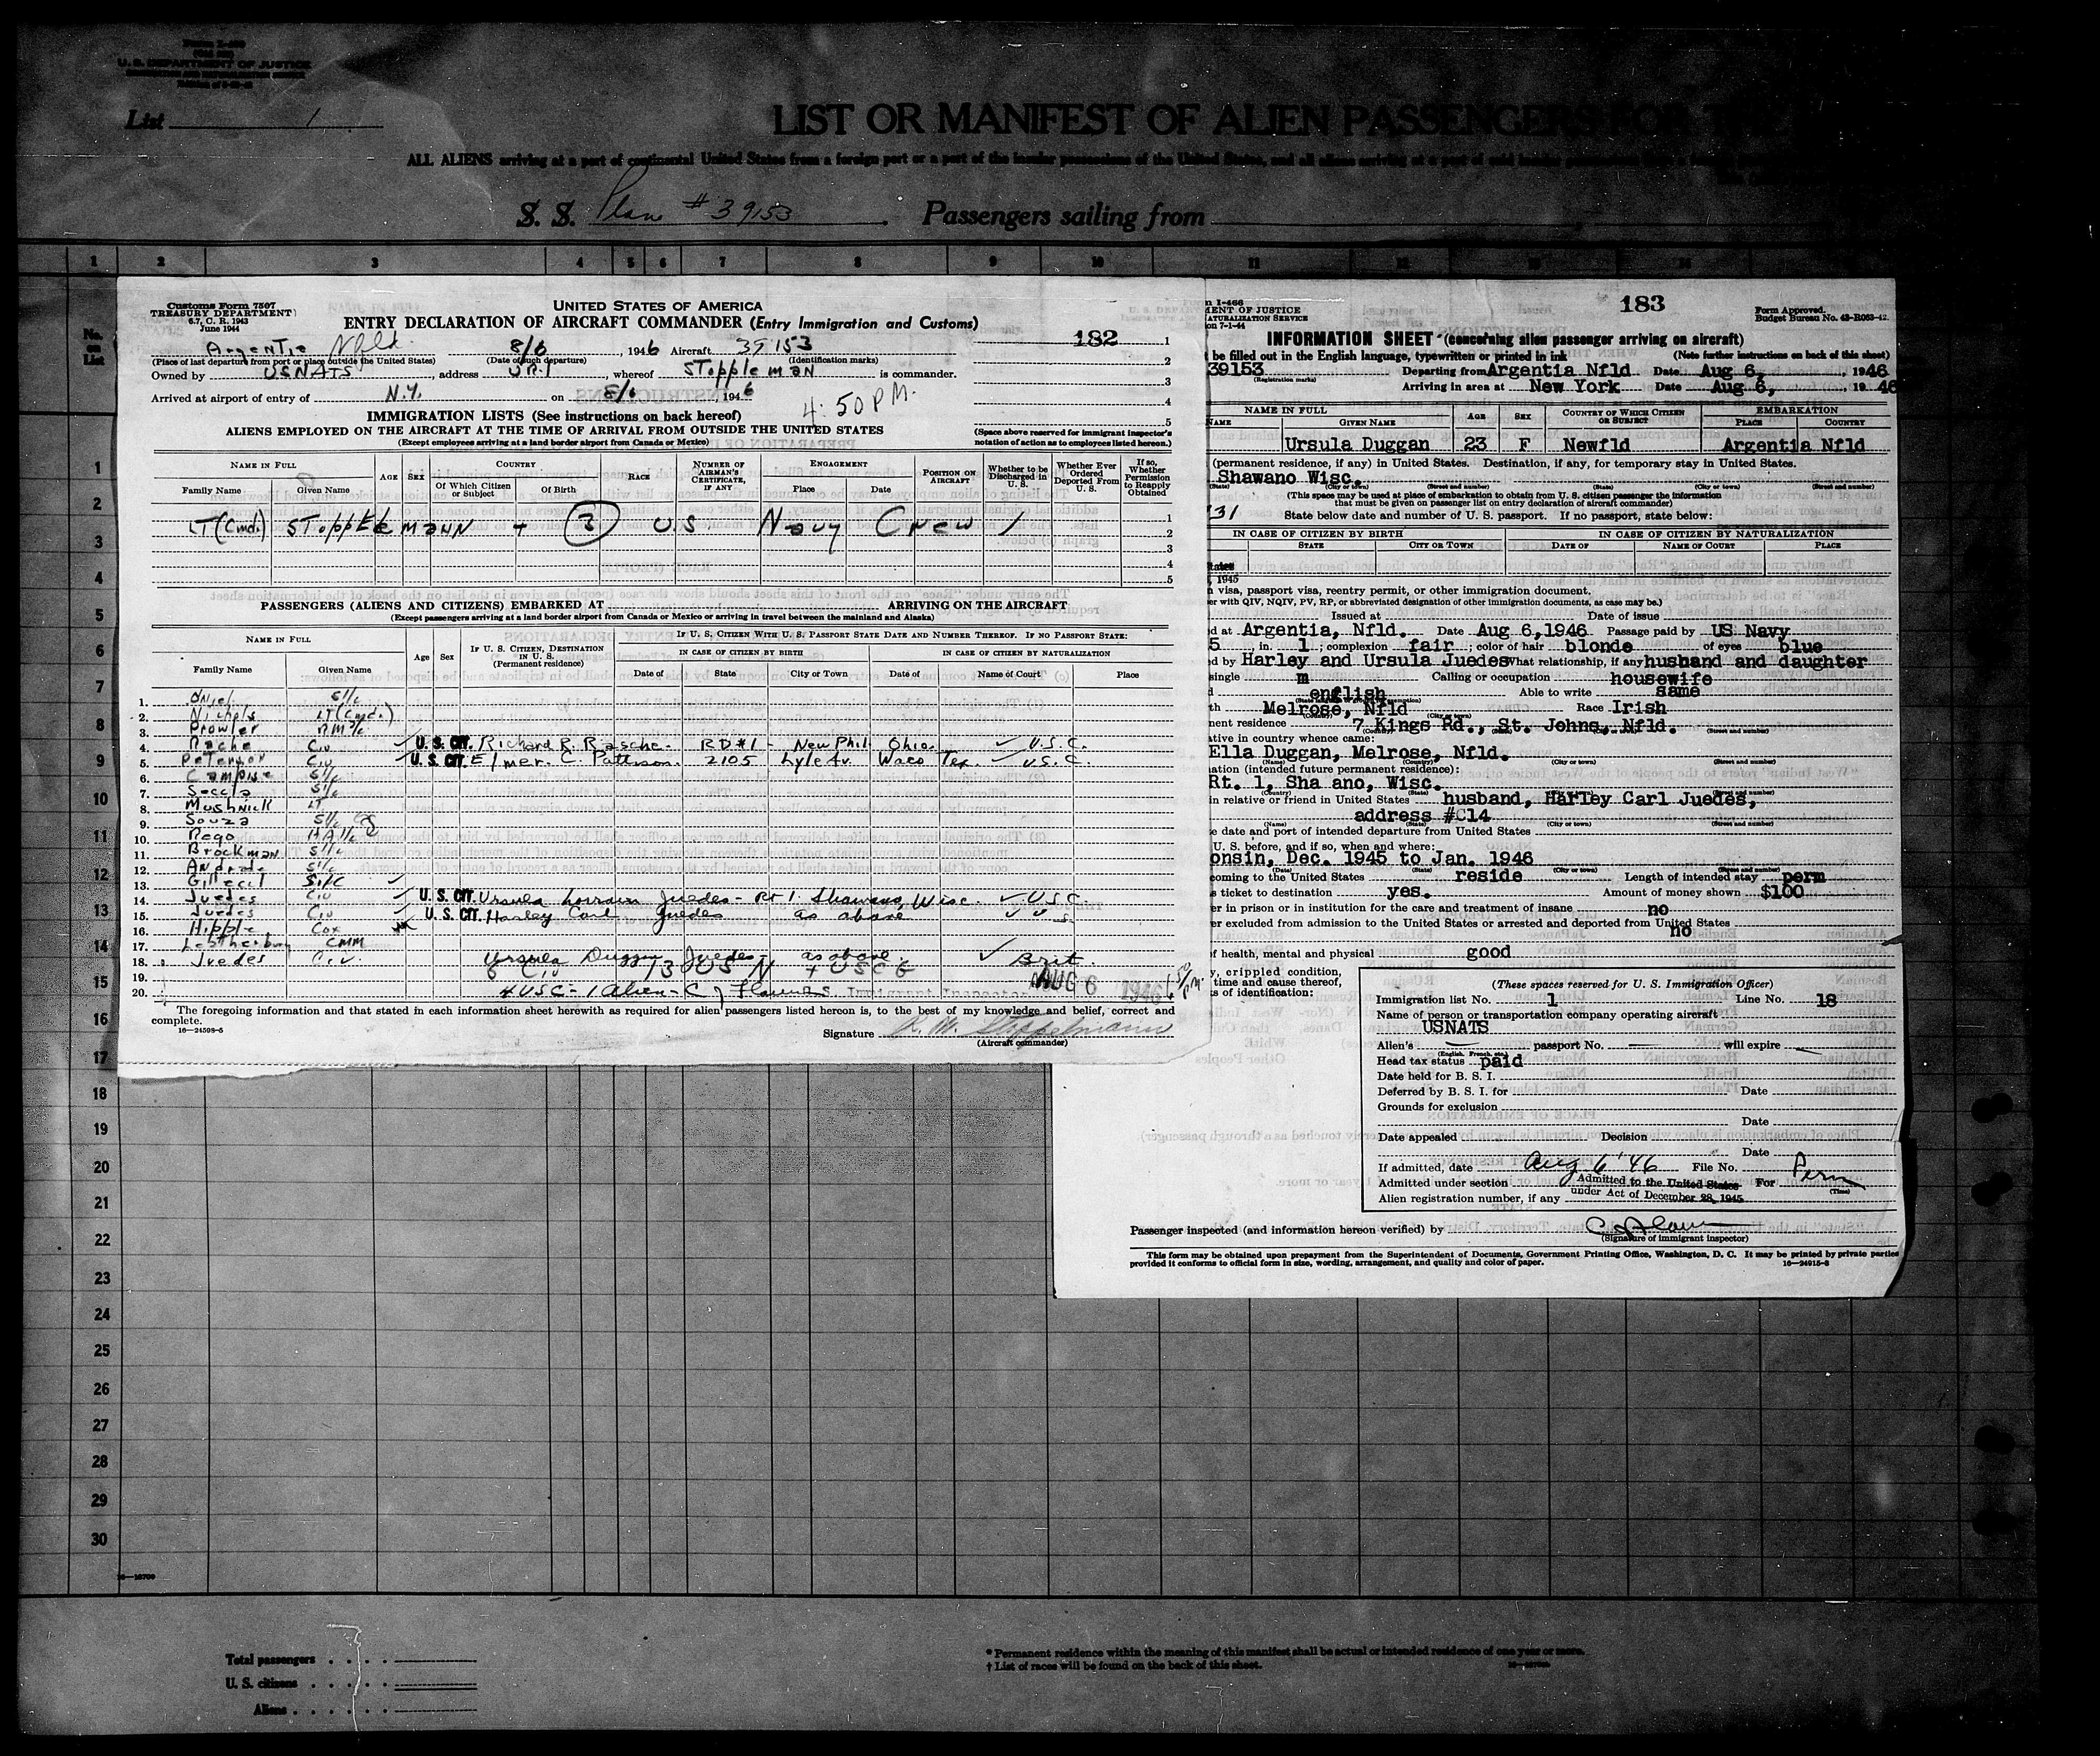 U. S. DEPARTMENT OF JUSTICE
List 1
LIST OR MANIFEST OF ALIEN PASSENGERS FOR
ALL ALIENS arriving at a port of continental United States from a foreign port or a port of the insular possessions of the United States, and all aliens arriving at a port of said insular possessions
S. S. Plane #39153 Passengers sailing from
1 2 3 4 5 6 7 8 9 10 11 12 13 14
No. on List
Customs Form 7507
TREASURY DEPARTMENT
6.7, C. R. 1943
June 1944
UNITED STATES OF AMERICA
ENTRY DECLARATION OF AIRCRAFT COMMANDER (Entry Immigration and Customs)
182
Argentia Nfld. 8/6, 1946 Aircraft 39153
(Place of last departure from port or place outside the United States) (Date of such departure) (Identification marks)
Owned by USNATS, address , whereof Stoppleman is commander.
Arrived at airport of entry of N.Y. on 8/6, 1946
4:50 P.M.
IMMIGRATION LISTS (See instructions on back hereof)
ALIENS EMPLOYED ON THE AIRCRAFT AT THE TIME OF ARRIVAL FROM OUTSIDE THE UNITED STATES
(Except employees arriving at a land border airport from Canada or Mexico)
(Space above reserved for immigrant inspector's notation of action as to employees listed hereon.)
NAME IN FULL AGE SEX COUNTRY RACE NUMBER OF AIRMAN'S CERTIFICATE, IF ANY ENGAGEMENT POSITION ON AIRCRAFT Whether to be Discharged in U. S. Whether Ever Ordered Deported From U. S. If so, Whether Permission to Reapply Obtained
Family Name Given Name Of Which Citizen or Subject Of Birth Place Date
LT (Cmd.) Stopplemann + 3 U.S Navy Crew
PASSENGERS (ALIENS AND CITIZENS) EMBARKED AT ARRIVING ON THE AIRCRAFT
(Except passengers arriving at a land border airport from Canada or Mexico or arriving in travel between the mainland and Alaska)
NAME IN FULL Age Sex IF U. S. CITIZEN, DESTINATION IN U. S. (Permanent residence) IF U. S. CITIZEN WITH U. S. PASSPORT STATE DATE AND NUMBER THEREOF. IF NO PASSPORT STATE:
IN CASE OF CITIZEN BY BIRTH IN CASE OF CITIZEN BY NATURALIZATION
Family Name Given Name Date of State City or Town Date of Name of Court Place
1. S1/c
2. Nichols LT (Cmd.)
3. Prowler
4. Rache Civ U. S. CIT. Richard R. Rasche - RD #1 - New Phil. Ohio. U.S.C.
5. Peterson Civ U. S. CIT. Elmer C. Patterson. 2105 Lyle Av. Waco Tex. U.S.C.
6. Campise S1/c
7. Soccla S1/c
8. Mushnick LT
9. Souza S1/c
10. Rego HA1/c
11. Brockman S1/c
12. Andrade S1/c
13. Gillecil S1/c
14. Juedes Civ U. S. CIT. Ursula Lorraine Juedes - Rt 1. Shawano, Wisc. U.S.C.
15. Juedes Civ U. S. CIT. Harley Carl Juedes as above
16. Hipple Cox
17. CMM
18. Juedes Civ. Ursula Duggan Juedes - as above. Brit.
19. 6 Civ 13 USN + USCG
20. 4 USC - 1 Alien - Immigrant Inspector AUG 6 1946
The foregoing information and that stated in each information sheet herewith as required for alien passengers listed hereon is, to the best of my knowledge and belief, correct and complete.
16—24598-5
Signature Stoppelmann
(Aircraft commander)
183
Form Approved.
Budget Bureau No. 43-R063-42.
INFORMATION SHEET (concerning alien passenger arriving on aircraft)
be filled out in the English language, typewritten or printed in ink (Note further instructions on back of this sheet)
39153 Departing from Argentia Nfld Date Aug 6, 1946
(Registration marks) Arriving in area at New York Date Aug 6, 1946
NAME IN FULL AGE SEX COUNTRY OF WHICH CITIZEN OR SUBJECT EMBARKATION
GIVEN NAME PLACE COUNTRY
Ursula Duggan 23 F Newfld Argentia Nfld
(permanent residence, if any) in United States. Destination, if any, for temporary stay in United States.
Shawano Wisc.
(This space may be used at place of embarkation to obtain from U. S. citizen passenger the information
that must be given on passenger list on entry declaration of aircraft commander)
State below date and number of U. S. passport. If no passport, state below:
IN CASE OF CITIZEN BY BIRTH IN CASE OF CITIZEN BY NATURALIZATION
STATE CITY OR TOWN DATE OF NAME OF COURT PLACE
, 1945
visa, passport visa, reentry permit, or other immigration document.
er with QIV, NQIV, PV, RP, or abbreviated designation of other immigration documents, as case may be.)
Issued at Date of issue
d at Argentia, Nfld. Date Aug 6,1946 Passage paid by US Navy
5 in. 1; complexion fair; color of hair blonde of eyes blue
ed by Harley and Ursula Juedes What relationship, if any husband and daughter
single m Calling or occupation housewife
english Able to write same
Melrose, Nfld Race Irish
nent residence 7 Kings Rd., St. Johns, Nfld.
ative in country whence came:
Ella Duggan, Melrose, Nfld.
ation (intended future permanent residence):
Rt. 1, Sha ano, Wisc.
in relative or friend in United States husband, Harley Carl Juedes,
address #C14
e date and port of intended departure from United States
U. S. before, and if so, when and where:
onsin, Dec. 1945 to Jan. 1946
coming to the United States reside Length of intended stay perm
s ticket to destination yes. Amount of money shown $100
er in prison or in institution for the care and treatment of insane no
er excluded from admission to the United States or arrested and deported from United States no
f health, mental and physical good
y, crippled condition,
time and cause thereof,
s of identification:
(These spaces reserved for U. S. Immigration Officer)
Immigration list No. 1 Line No. 18
Name of person or transportation company operating aircraft
USNATS
Alien's passport No. will expire
(English, French, etc.)
Head tax status paid
Date held for B. S. I.
Deferred by B. S. I. for Date
Grounds for exclusion
Date
Date appealed Decision
Date
If admitted, date Aug 6 '46 File No.
Admitted under section Admitted to the United States For Perm
(Time)
Alien registration number, if any under Act of December 28, 1945
Passenger inspected (and information hereon verified) by
(Signature of immigrant inspector)
This form may be obtained upon prepayment from the Superintendent of Documents, Government Printing Office, Washington, D. C. It may be printed by private parties
provided it conforms to official form in size, wording, arrangement, and quality and color of paper. 16—24915-3
Total passengers
U. S. citizens
Aliens
* Permanent residence within the meaning of this manifest shall be actual or intended residence of one year or more.
† List of races will be found on the back of this sheet.